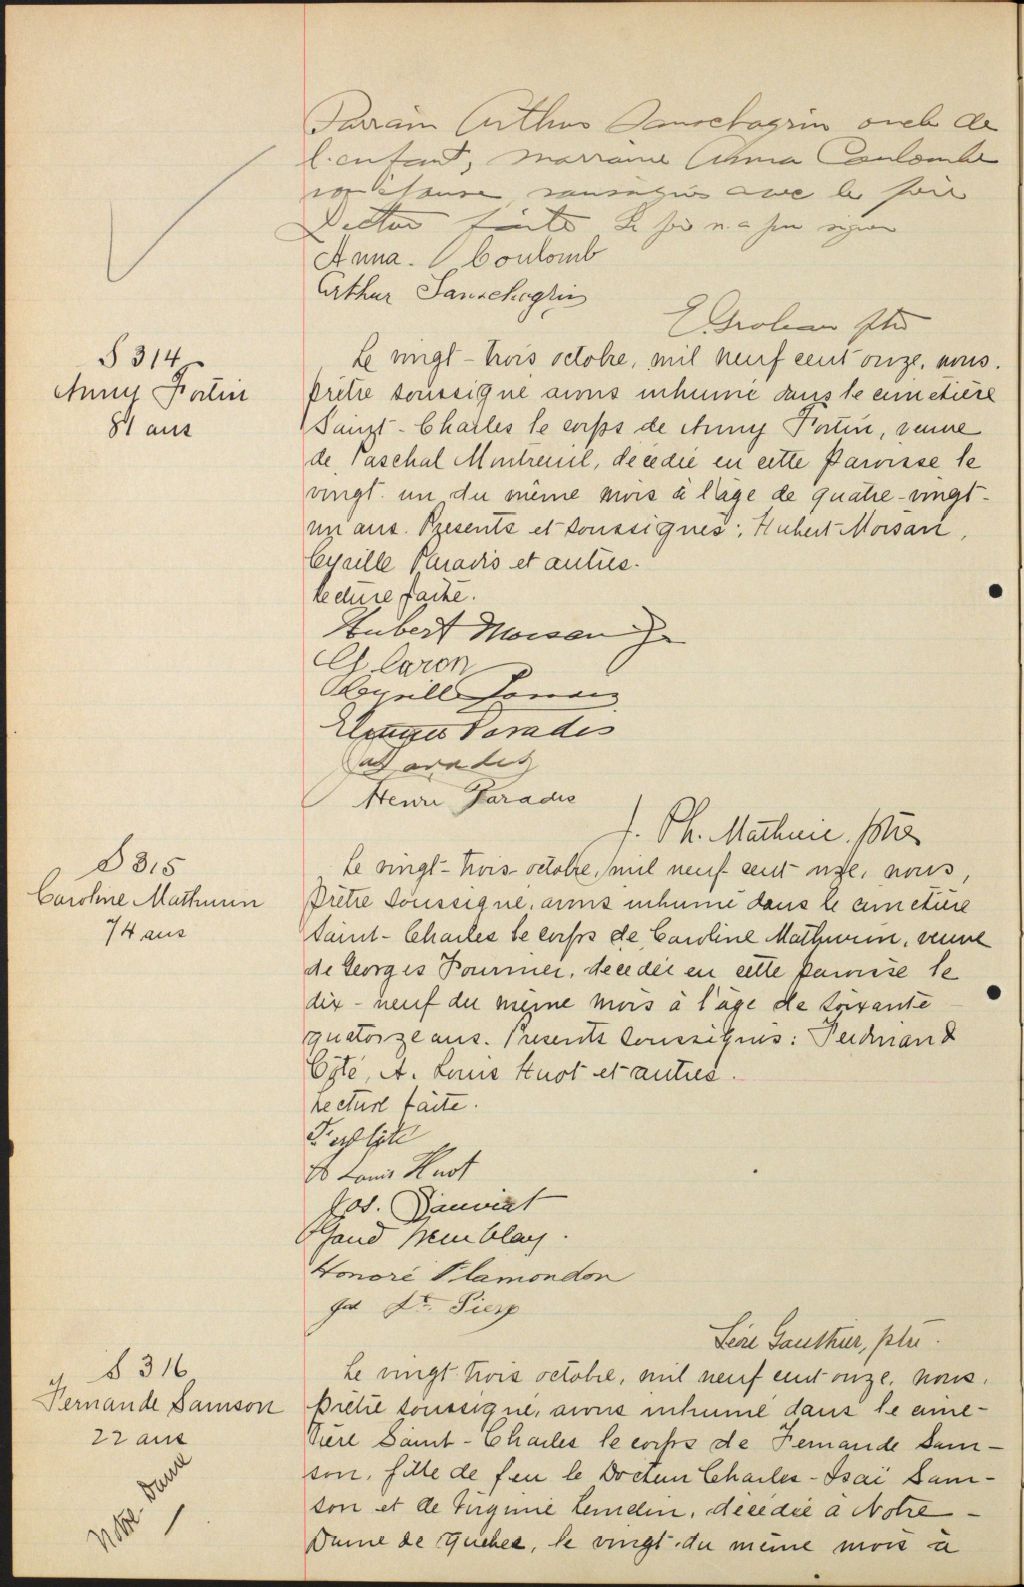 Parrain Arthur Sanschagrin oncle de
l'enfant, marraine Anna Coulombe
son épouse soussignés avec le père
Lecture faite Le père n'a pu signer
Anna. Coulomb
Arthur Sanschagrin
E. Grolean ptre
S 314
Anny Fortin
81 ans
Le vingt-trois octobre, mil neuf cent onze, nous,
prêtre soussigné avons inhumé dans le cimetière
Saint-Charles le corps de Anny Fortin, veuve
de Paschal Montreuil, décédée en cette paroisse le
vingt un du même mois à l'âge de quatre-vingt-
un ans. Présents et soussignés: Hubert Moisan,
Cyrille Paradis et autres.
Lecture faite.
Hubert Moisan Jr
Caron
Cyrille
Paradis
Paradis
Henri Paradis
J. Ph. Mathurin, ptre
S 315
Caroline Mathurin
74 ans
Le vingt-trois octobre, mil neuf cent onze, nous,
prêtre soussigné, avons inhumé dans le cimetière
Saint-Charles le corps de Caroline Mathurin, veuve
de Georges Fournier, décédée en cette paroisse le
dix-neuf du même mois à l'âge de soixante
quatorze ans. Présents soussignés: Ferdinand
Côté, A. Louis Huot et autres.
Lecture faite.
Ferd Côté
A Louis Huot
Jos. Dauviat
Tremblay.
Honoré Plamondon
St. Pierre
Léon Gauthier, ptre.
S 316
Fernande Samson
22 ans
Notre Dame
Le vingt trois octobre, mil neuf cent onze, nous,
prêtre soussigné, avons inhumé dans le cime-
tière Saint-Charles le corps de Fernande Sam-
son, fille de feu le Docteur Charles-Isaï Sam-
son et de Virginie Lemelin, décédée à Notre-
Dame de Québec, le vingt du même mois à